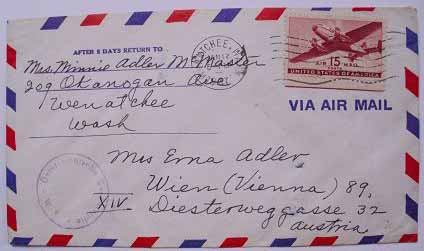 AFTER 5 DAYS RETURN TO
Mrs. Minnie Adler McMaster
209 Okanogan Ave
Wenatchee
Wash
AIR 15 MAIL
CENTS
UNITED STATES OF AMERICA
VIA AIR MAIL
Mrs Erna Adler
Wien (Vienna) 89,
XIV. Diesterweggasse 32
Austria